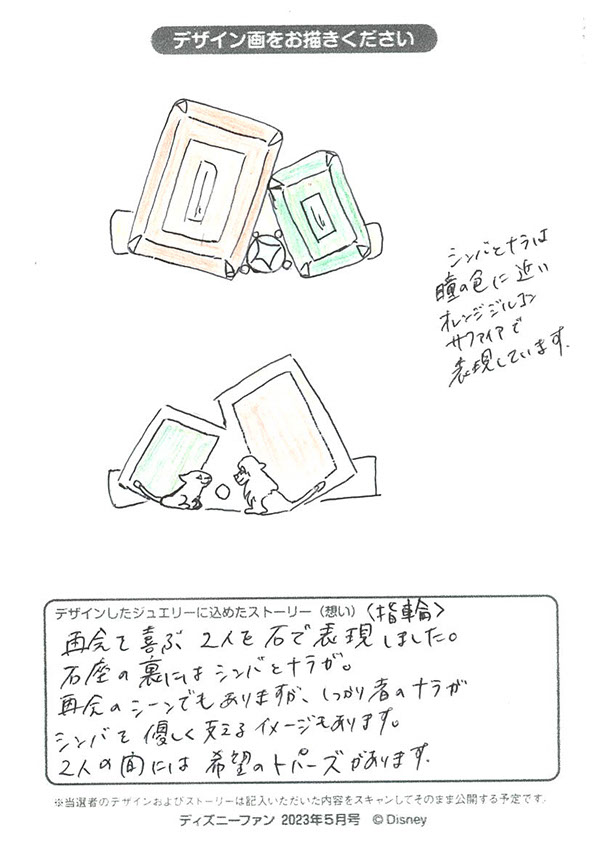 デザイン画をお描きください
シンバとナラは
瞳の色に近い
オレンジジルコン
サファイアで
表現しています.
デザインしたジュエリーに込めたストーリー（想い）〈指輪〉
再会を喜ぶ 2人を石で表現しました。
石座の裏にはシンバとナラが。
再会のシーンでもありますが、しっかり者のナラが
シンバを優しく支えるイメージもあります。
2人の間には希望のトパーズがあります.
※当選者のデザインおよびストーリーは記入いただいた内容をスキャンしてそのまま公開する予定です。
ディズニーファン 2023年5月号 ©Disney